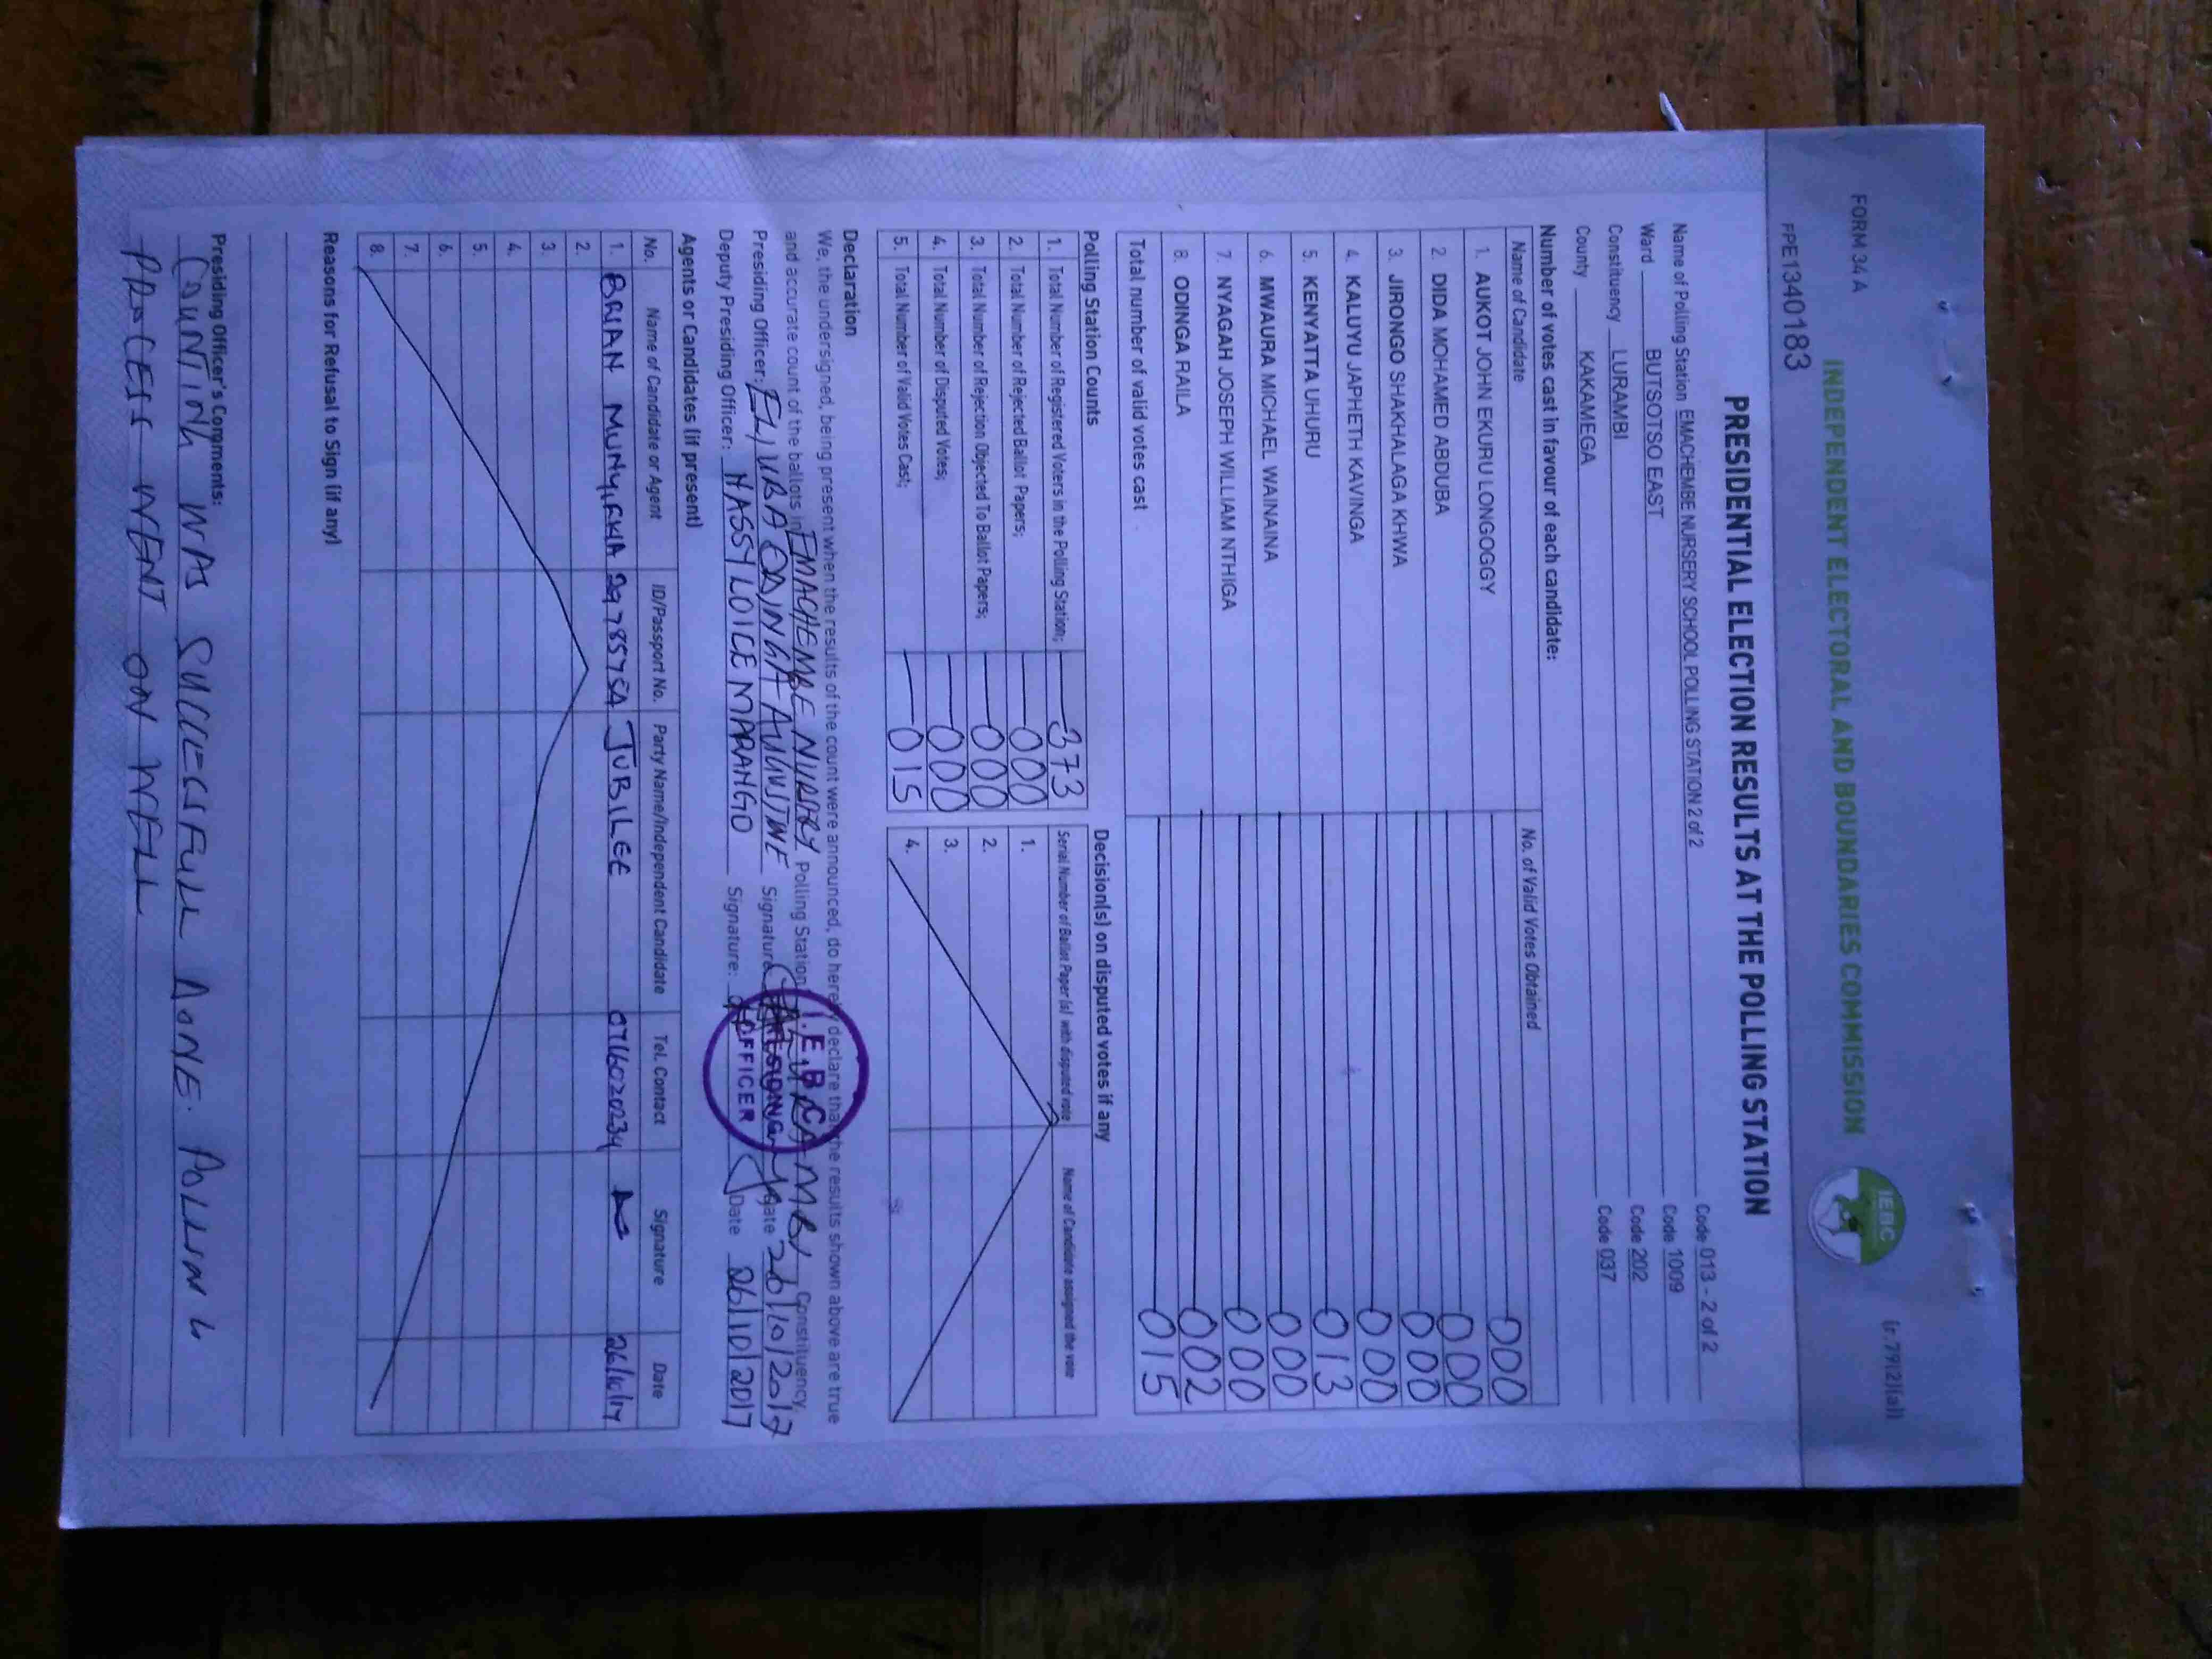 FORM 34 A
(r.79(2)(a))
INDEPENDENT ELECTORAL AND BOUNDARIES COMMISSION
IEBC
PPE1340183
PRESIDENTIAL ELECTION RESULTS AT THE POLLING STATION
Name of Polling Station EMACHEMBE NURSERY SCHOOL POLLING STATION 2 of 2 Code 013 - 2 of 2
Ward BUTSOTSO EAST Code 1009
Constituency LURAMBI Code 202
County KAKAMEGA Code 037
Number of votes cast in favour of each candidate:
Name of Candidate No. of Valid Votes Obtained
1. AUKOT JOHN EKURU LONGOGGY 000
2. DIDA MOHAMED ABDUBA 000
3. JIRONGO SHAKHALAGA KHWA 000
4. KALUYU JAPHETH KAVINGA 000
5. KENYATTA UHURU 013
6. MWAURA MICHAEL WAINAINA 000
7. NYAGAH JOSEPH WILLIAM NTHIGA 000
8. ODINGA RAILA 002
Total number of valid votes cast 015
Polling Station Counts
1. Total Number of Registered Voters in the Polling Station; 373
2. Total Number of Rejected Ballot Papers; 000
3. Total Number of Rejection Objected To Ballot Papers; 000
4. Total Number of Disputed Votes; 000
5. Total Number of Valid Votes Cast; 015
Decision(s) on disputed votes if any
Serial Number of Ballot Paper (s) with disputed vote Name of Candidate assigned the vote
1.
2.
3.
4.
Declaration
We, the undersigned, being present when the results of the count were announced, do hereby declare that the results shown above are true
and accurate count of the ballots in EMACHEMBE NURSERY Polling Station, LURAMBI Constituency,
Presiding Officer: ODINGA AUGUSTINE Signature: Date 26/10/2017
Deputy Presiding Officer: NASSY LOICE MARANGO Signature: Date 26/10/2017
I.E.B.C
OFFICER
Agents or Candidates (if present)
No. Name of Candidate or Agent ID/Passport No. Party Name/Independent Candidate Tel. Contact Signature Date
1. BRIAN JUBILEE 0716020234 26/10/17
2.
3.
4.
5.
6.
7.
8.
Reasons for Refusal to Sign (if any)
Presiding Officer's Comments:
COUNTING WAS SUCCESSFULL DONE. POLLING
PROCESS WENT ON WELL